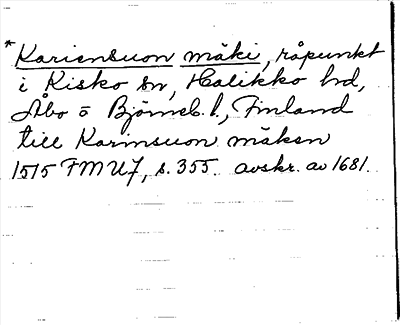 *Kariensuon mäki, råpunkt
i Kisko sn, Halikko hd,
Åbo o Björneb. l., Finland
till Karinsuon mäken
1515 FMU 7, s. 355. avskr. av 1681.